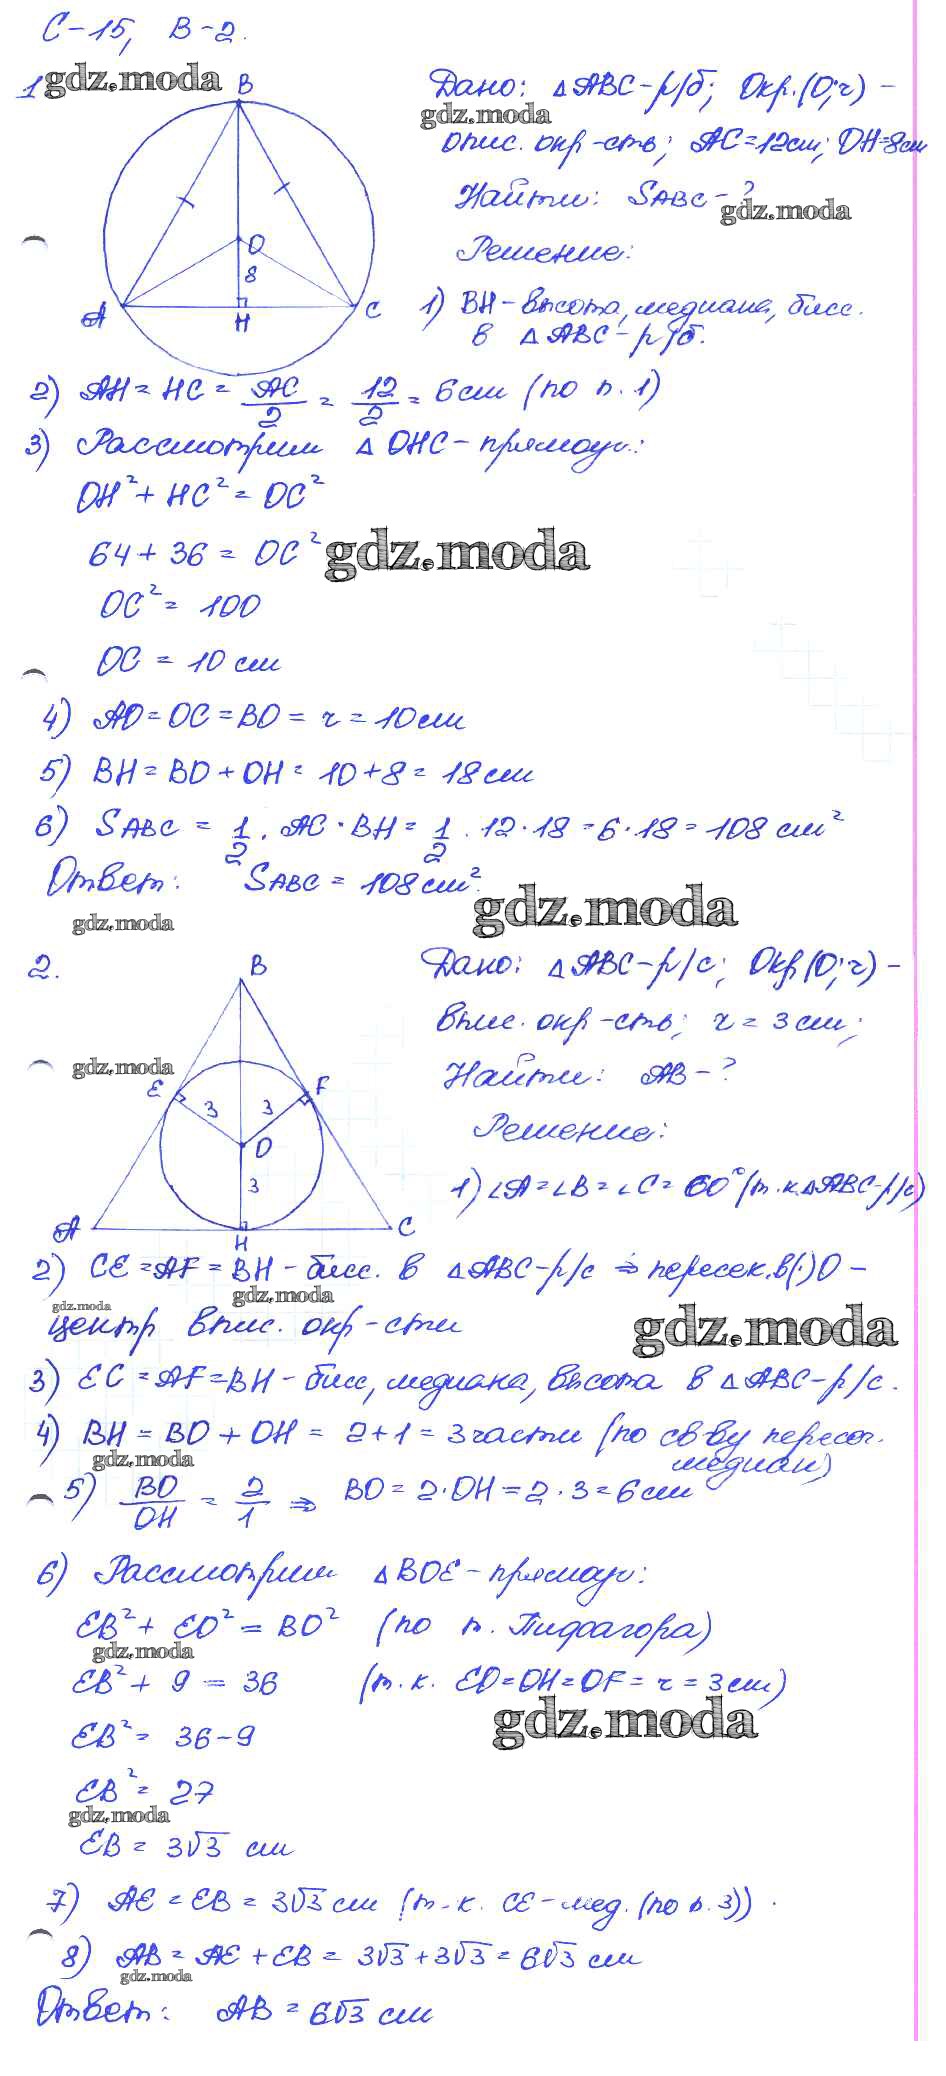 С-15, В-2.
1 gdz.moda
B
Дано: △ABC-р/б; Окр.(O;r) -
gdz.moda
опис. окр-сть; AC=12см; OH=8см
Найти: SABC-?
gdz.moda
Решение:
O
8
A
H
C
1) BH-высота, медиана, бисс.
в △ABC-р/б.
2) AH = HC = AC/2 = 12/2 = 6см (по п. 1)
3) Рассмотрим △OHC-прямоуг.:
OH² + HC² = OC²
64 + 36 = OC²
gdz.moda
OC² = 100
OC = 10 см
4) AO = OC = BO = r = 10 см
5) BH = BO + OH = 10 + 8 = 18 см
6) SABC = 1/2 · AC · BH = 1/2 · 12 · 18 = 6 · 18 = 108 см²
Ответ: SABC = 108 см².
gdz.moda
gdz.moda
2.
B
Дано: △ABC-р/с; Окр(O;r) -
впис. окр-сть; r = 3 см;
gdz.moda
Найти: AB-?
E
F
3
3
Решение:
O
3
1) ∠A = ∠B = ∠C = 60° (т.к. △ABC-р/с)
A
H
C
2) CE = AF = BH - бисс. в △ABC-р/с ⇒ пересек. в (·) O -
gdz.moda
gdz.moda
центр впис. окр-сти
gdz.moda
3) EC = AF = BH - бисс, медиана, высота в △ABC-р/с.
4) BH = BO + OH = 2 + 1 = 3 части (по св-ву пересеч.
медиан)
gdz.moda
5) BO/OH = 2/1 ⇒ BO = 2 · OH = 2 · 3 = 6 см
6) Рассмотрим △BOE-прямоуг:
EB² + EO² = BO² (по т. Пифагора)
gdz.moda
EB² + 9 = 36 (т.к. EO = OH = OF = r = 3 см)
gdz.moda
EB² = 36 - 9
EB² = 27
gdz.moda
EB = 3√3 см
7) AE = EB = 3√3 см (т.к. CE-мед. (по п. 3)).
8) AB = AE + EB = 3√3 + 3√3 = 6√3 см
gdz.moda
Ответ: AB = 6√3 см